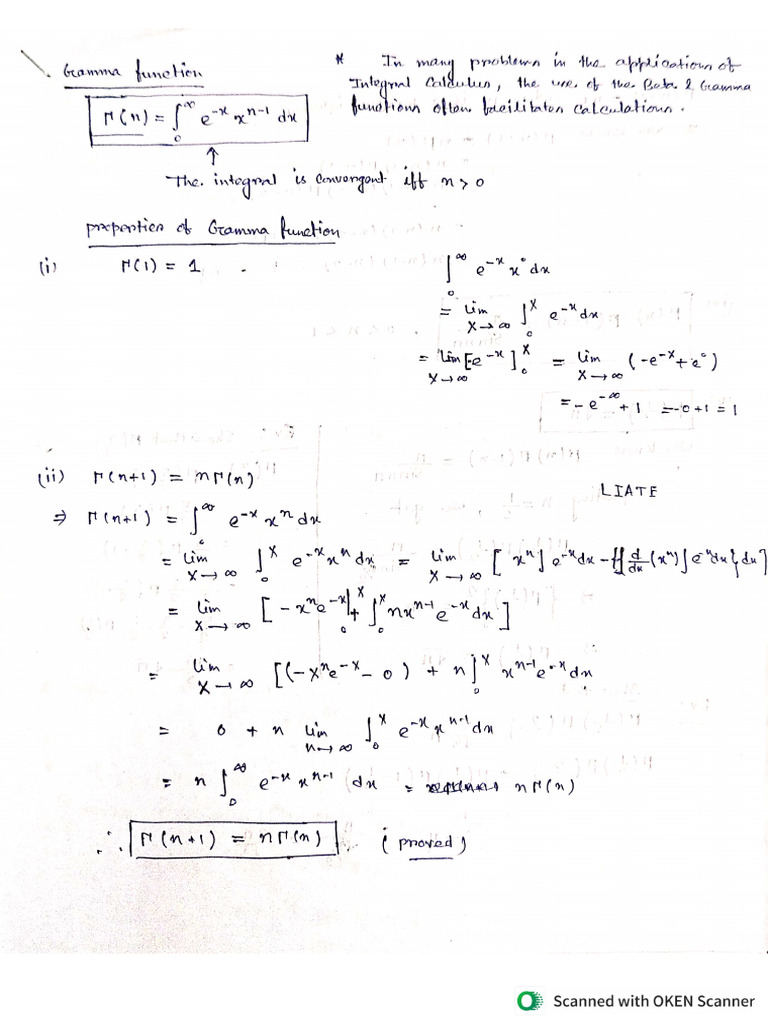 Gamma function
Γ(n) = ∫₀^∞ e^-x x^n-1 dx
* In many problems in the applications of
Integral Calculus, the use of the Beta & Gamma
functions often facilitates calculations.
↑
The integral is convergent iff n > 0
properties of Gamma function
(i) Γ(1) = 1 .
∫₀^∞ e^-x x^0 dx
= lim X→∞ ∫₀^X e^-x dx
= lim X→∞ [-e^-x]₀^X = lim X→∞ (-e^-X + e^0)
= -e^-∞ + 1 = -0+1 = 1
(ii) Γ(n+1) = nΓ(n)
LIATE
⇒ Γ(n+1) = ∫₀^∞ e^-x x^n dx
= lim X→∞ ∫₀^X e^-x x^n dx = lim X→∞ [ x^n ∫ e^-x dx - ∫{d/dx (x^n) ∫ e^-x dx} dx ]
= lim X→∞ [ -x^n e^-x |₀^X + ∫₀^X n x^n-1 e^-x dx ]
= lim X→∞ [(-X^n e^-X - 0) + n ∫₀^X x^n-1 e^-x dx
= 0 + n lim n→∞ ∫₀^X e^-x x^n-1 dx
= n ∫₀^∞ e^-x x^n-1 dx = nΓ(n)
∴ Γ(n+1) = nΓ(n) (proved)
Scanned with OKEN Scanner